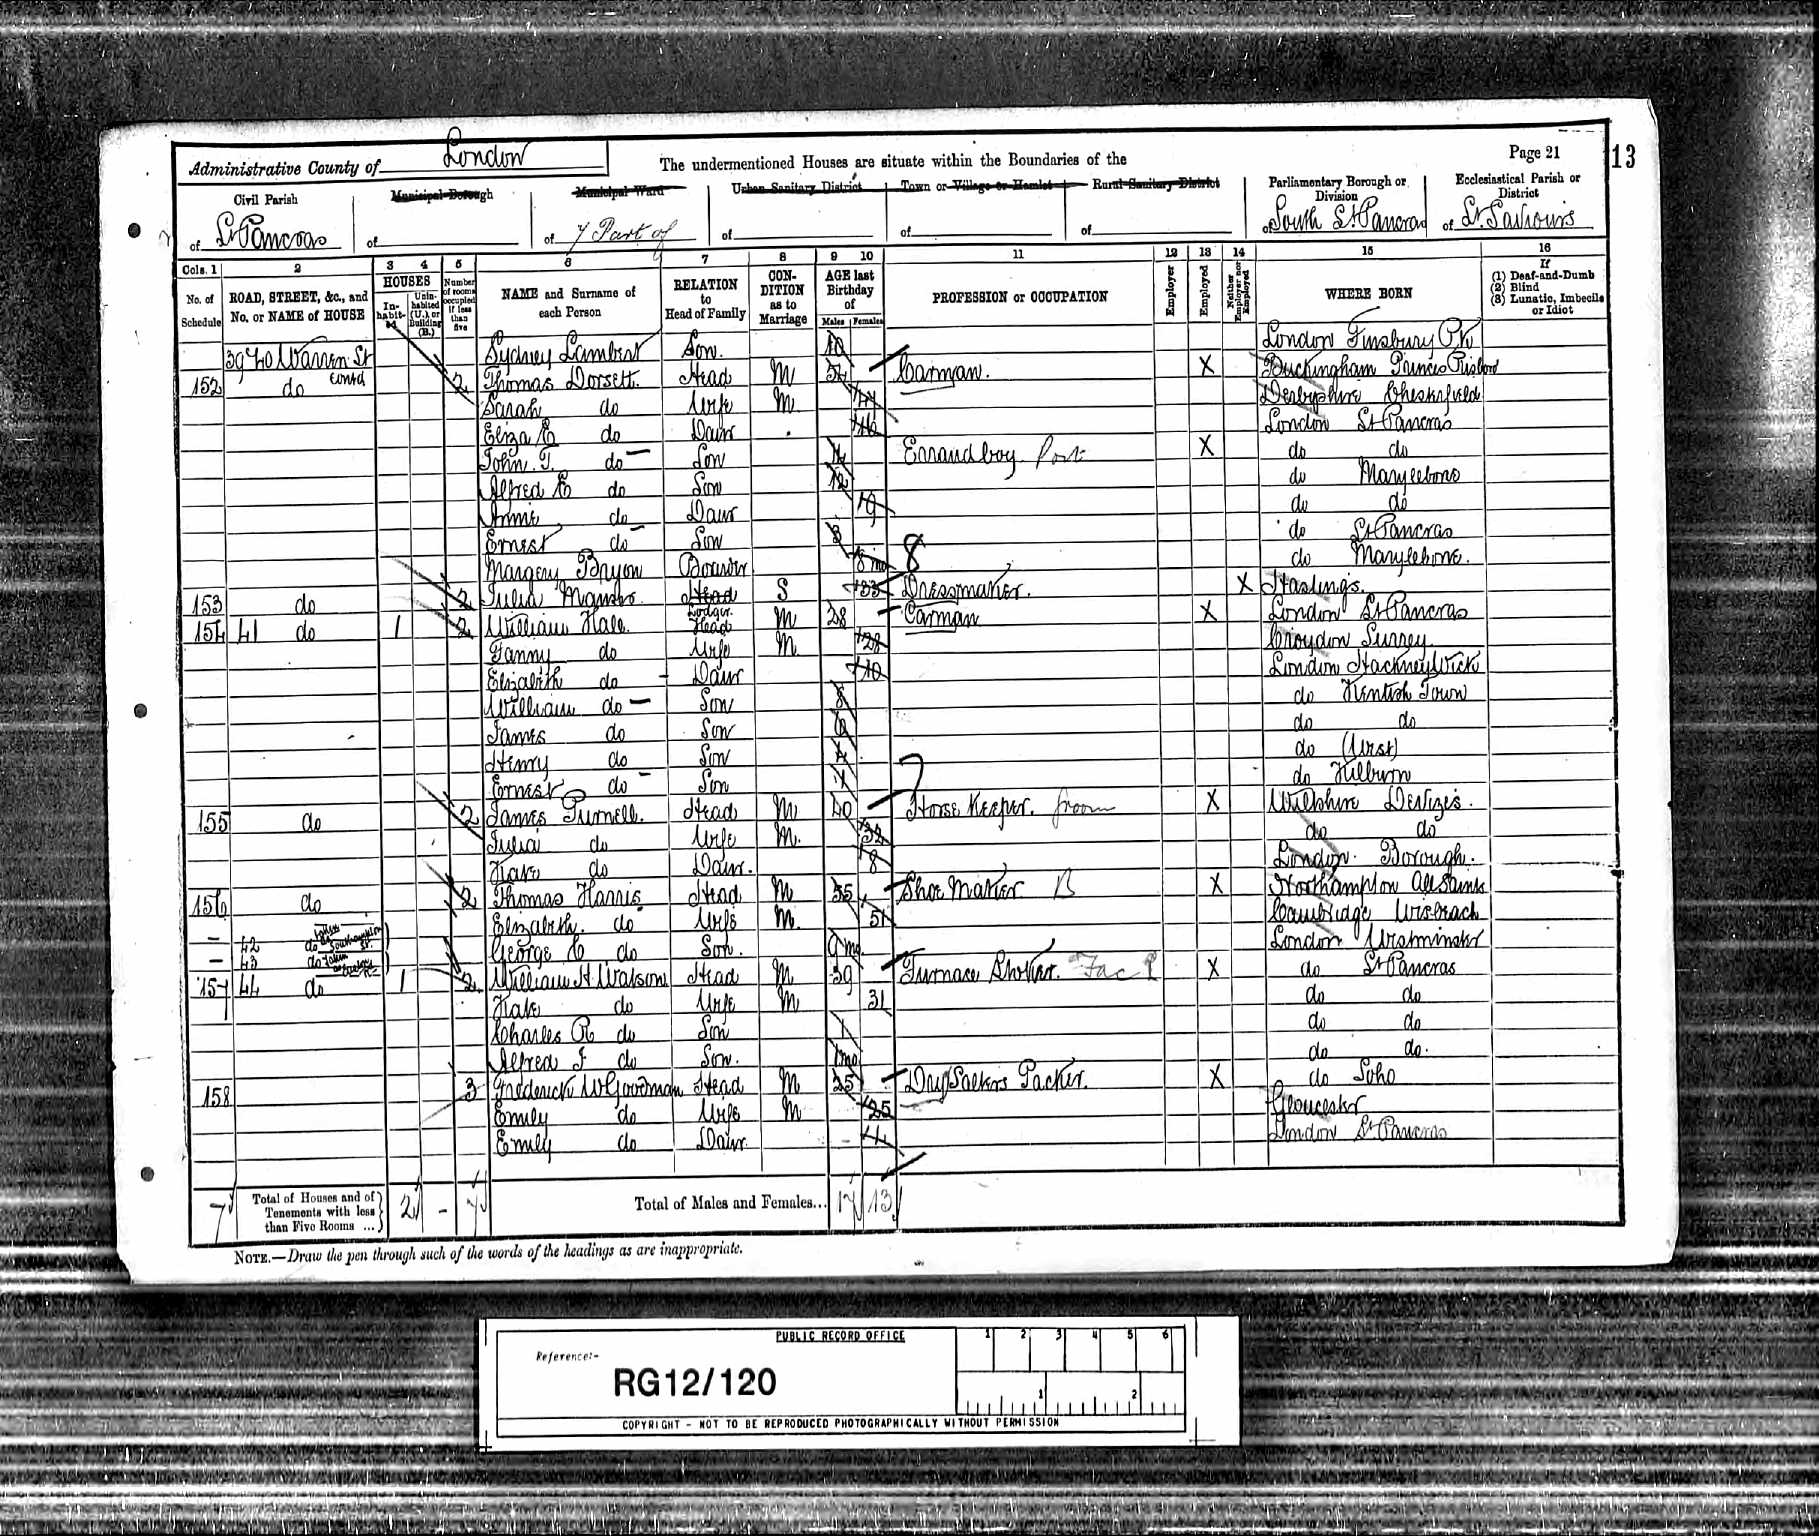 Administrative County of London
The undermentioned Houses are situate within the Boundaries of the
Page 21
13
Civil Parish
of St Pancras
Municipal Borough
of
Municipal Ward
of 7 Part of
Urban Sanitary District
of
Town or Village or Hamlet
of
Rural Sanitary District
of
Parliamentary Borough or Division
of South St Pancras
Ecclesiastical Parish or District
of St Saviours
Cols. 1 2 3 4 5 6 7 8 9 10 11 12 13 14 15 16
No. of Schedule
ROAD, STREET, &c., and No. or NAME of HOUSE
HOUSES
In-habit-ed
Unin-habited (U.), or Building (B.)
Number of rooms occupied if less than five
NAME and Surname of each Person
RELATION to Head of Family
CON-DITION as to Marriage
AGE last Birthday of
Males Females
PROFESSION or OCCUPATION
Employer
Employed
Neither Employer nor Employed
WHERE BORN
If
(1) Deaf-and-Dumb
(2) Blind
(3) Lunatic, Imbecile or Idiot
39 40 Warren St contd Sydney Lambert Son. 10 London Finsbury Pk
152 do 2 Thomas Dorsett. Head M 54 Carman. X Buckingham Princes Risboro
Sarah do Wife M 44 Derbyshire Chesterfield
Eliza E do Daur 16 London St Pancras
John. T. do Son 14 Errand boy. Port X do do
Alfred E do Son 12 do Marylebone
Annie do Daur 9 do do
Ernest do Son 3 do St Pancras
Margery Bryon Boarder 8 mo 8 do Marylebone.
153 do 2 Julia Head Lodger S 33 Dressmaker. X Hastings.
154 41 do 1 2 William Hale. Head M 28 Carman X London St Pancras
Fanny do Wife M 28 Croydon Surrey.
Elizabeth do Daur 10 London Hackney Wick
William do Son 8 do Kentish Town
James do Son 6 do do
Henry do Son 4 do (West)
Ernest do Son 1 7 do Kilburn
155 do 2 James Purnell. Head M 40 Horse Keeper. groom X Wiltshire Devizes.
Julia do Wife M. 32 do do
Kate do Daur. 8 London. Borough.
156 do 2 Thomas Harris Head M 55 Shoe Maker B X Northampton All Saints
Elizabeth. do Wife M. 51 Cambridge Wisbeach
- 42 do taken in Southampton St. George E do Son. 9 mo London Westminster
- 43 do taken
157 44 do 1 2 William H Watson Head M 39 Furnace Stoker. Fac X do St Pancras
Kate do Wife M 31 do do
Charles R do Son 1 do do
Alfred F do Son. 1 mo do do.
158 3 Frederick W Goodman Head M 25 Drysalters Packer. X do Soho
Emily do Wife M 25 Gloucester
Emily do Daur. 4 London St Pancras
7 Total of Houses and of Tenements with less than Five Rooms ... 2 - 7 Total of Males and Females... 17 13
NOTE.—Draw the pen through such of the words of the headings as are inappropriate.
PUBLIC RECORD OFFICE
1 2 3 4 5 6
Reference:-
RG12/120
1 2
COPYRIGHT - NOT TO BE REPRODUCED PHOTOGRAPHICALLY WITHOUT PERMISSION